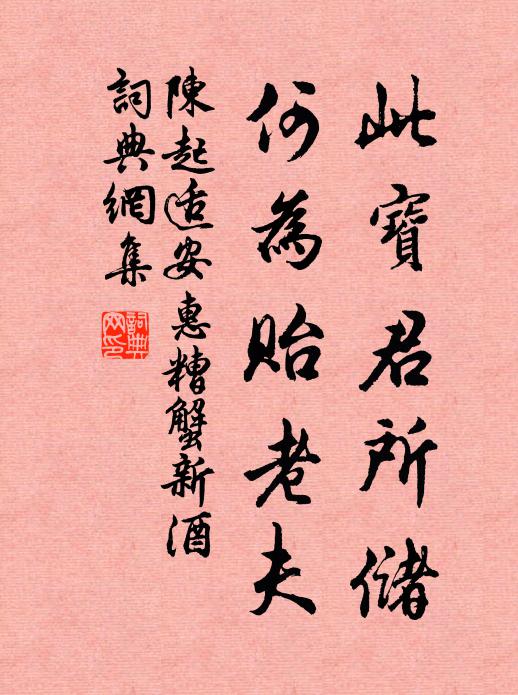 此寶君所儲
何為貽老夫
陳起适安惠糟蟹新酒
詞典網集
詞典网印